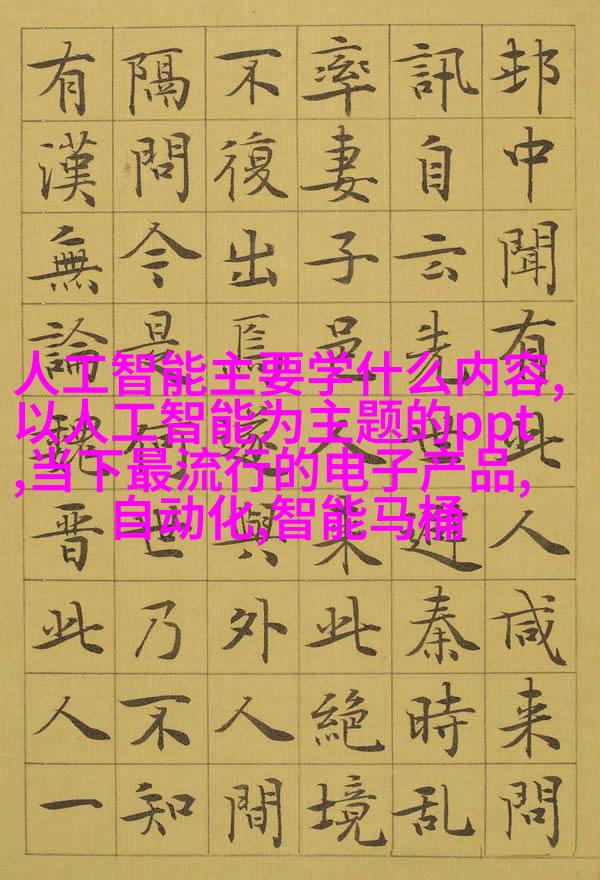 邨中聞有此人咸来問
訊自云先世避秦時乱
率妻子邑人来此絶境
不復出焉遂與外人間
隔問今是何世乃不知
有漢無論魏晋此人一
人工智能主要学什么内容,
以人工智能为主题的ppt
,当下最流行的电子产品,
自动化,智能马桶